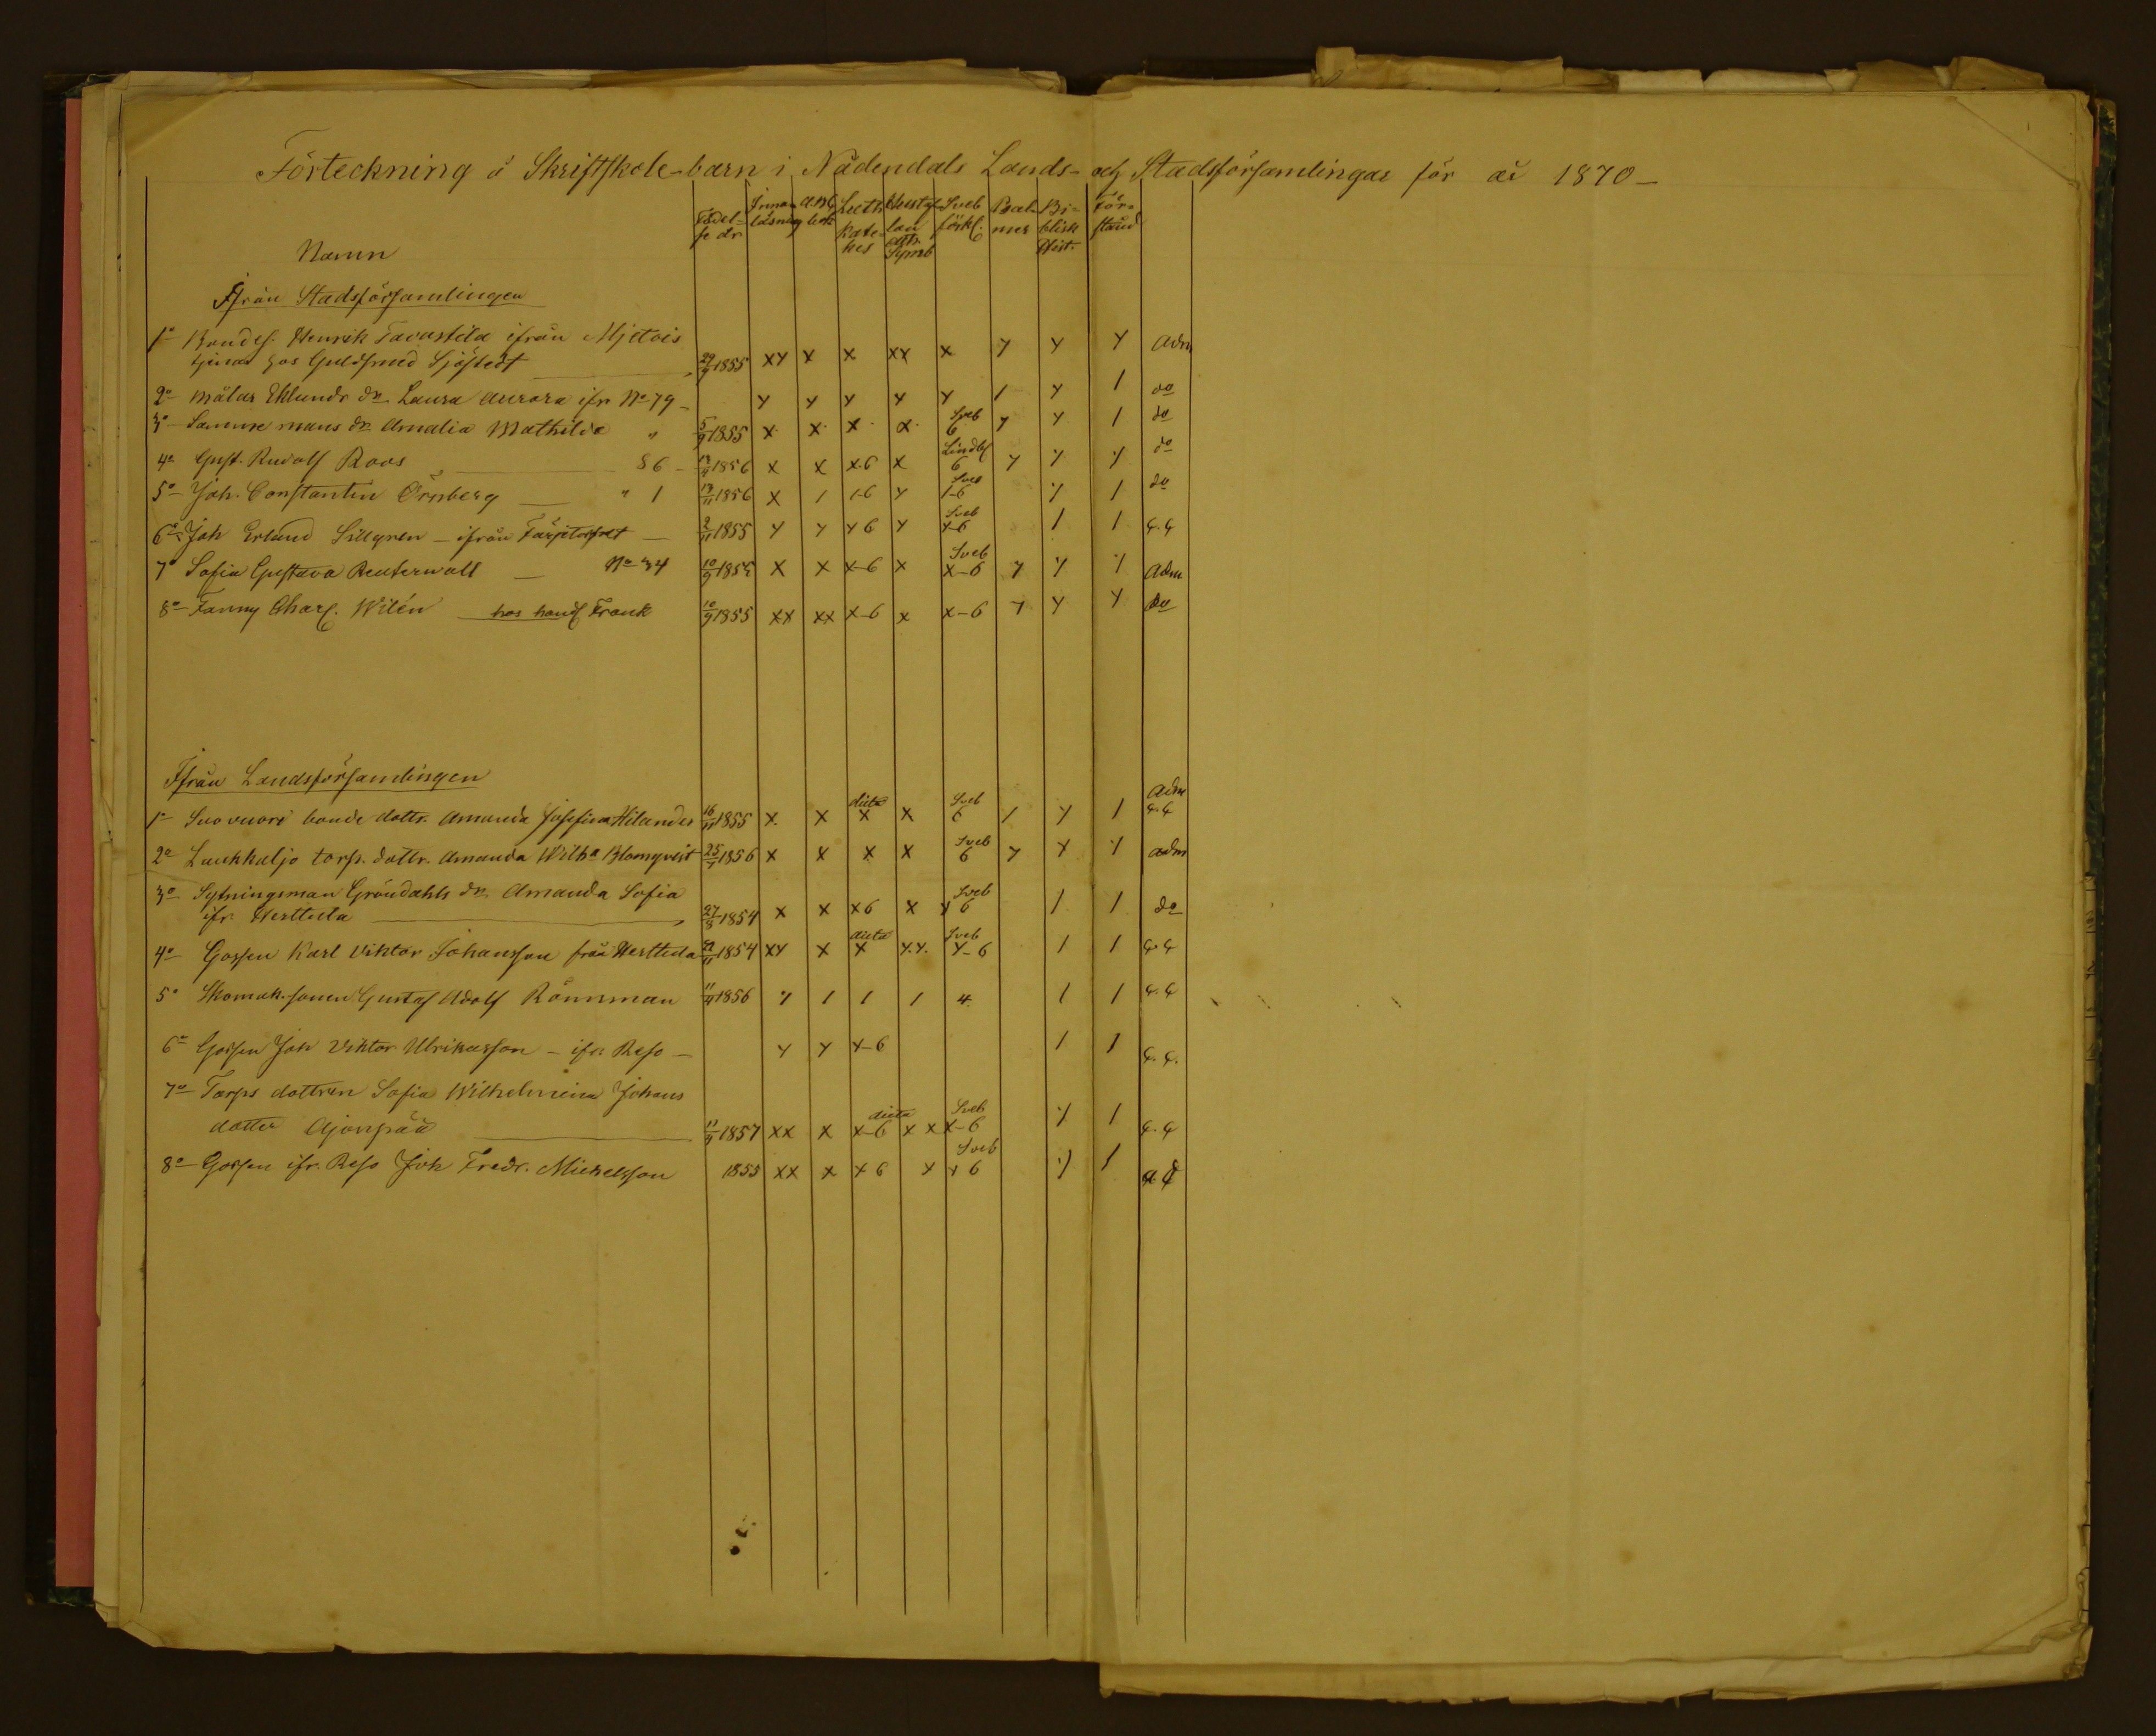 Förteckning å Skriftskole-barn i Nådendals Lands- och Stadsförsamlingar för år 1870 -
Namn Födel-se år Innan-läsning A.B.C. bok Luth Kate-kes Hustaf-lan Ath. Symb Sveb förkl. Psal-mer Bi-blisk Hist. För-stånd
Ifrån Stadsförsamlingen
1o Bondes. Henrik Tavastila ifrån Mjetois
tjenar hos Guldsmed Sjöstedt 29/9 1855 xy x x xx x y y y Adm
2o Målar Eklunds dr. Laura Aurora ifr No 79 - y y y y y 1 y 1 do
3o Samme mans dr Amalia Mathilda " 5/9 1855 x x x x Sveb 6 y y 1 do
4o Gust. Rudolf Roos 86 - 1856 x x x-6 x Lindbl 6 y y y do
5o Joh. Constantin Örnberg " 1 13/11 1856 x 1 1-6 y Sveb 1-6 y 1 do
6o Joh Erland Sillgren - ifrån 2/11 1855 y y y 6 y Sveb y-6 1 1 q.q
7o Sofia Gustava Reuterwall No 34 10/9 1855 x x x-6 x Sveb x-6 y y 1 Adm
8o Fanny Charl. Wilén hos handl Frank 10/9 1855 xx xx x-6 x x-6 y y y do
Ifrån Landsförsamlingen
1o Luovuori bonde dottr. Amanda Josefina Hilander 16/11 1855 x. x dicta x x Sveb 6 1 y 1 Adm q.q
2o Luukkaljo torp. dottr. Amanda Wilha Blomqvist 25/1 1856 x x x x Sveb 6 y y y adm
3o Sytningsman Gröndahls dr. Amanda Sofia
ifr. Herttula 27/8 1854 x x x6 x y Sveb 6 1 1 do
4o Gossen Karl Viktor Johansson från Herttula 1854 xy x dicta x y.y. Sveb y-6 1 1 q.q
5o Skomak. sonen Gustaf Adolf Rönnman 1856 y 1 1 1 4. 1 1 q.q
6o Gossen Joh Viktor Ulrikasson - ifr. Reso - y y y-6 1 1 q.q.
7o Torps dottren Sofia Wilhelmina Johans
dotter Ajonpää 11/9 1857 xx x dicta x-6 x x Sveb x-6 y 1 q.q
8o Gossen ifr. Reso Joh Fredr. Michelsson 1855 xx x x 6 x Sveb y 6 y 1